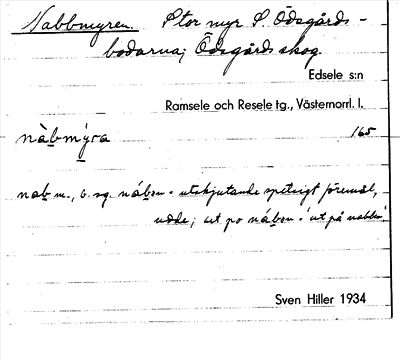 Nabbmyren. Stor myr S. Ödsgårds-
bodarna; Ödsgårds skog.
Edsele s:n
Ramsele och Resele tg., Västernorrl. l.
nàbmýra 165
nab m., b. sg. nábən = utskjutande spetsigt föremål,
udde; ut po nábən = 'ut på nabben'
Sven Hiller 1934